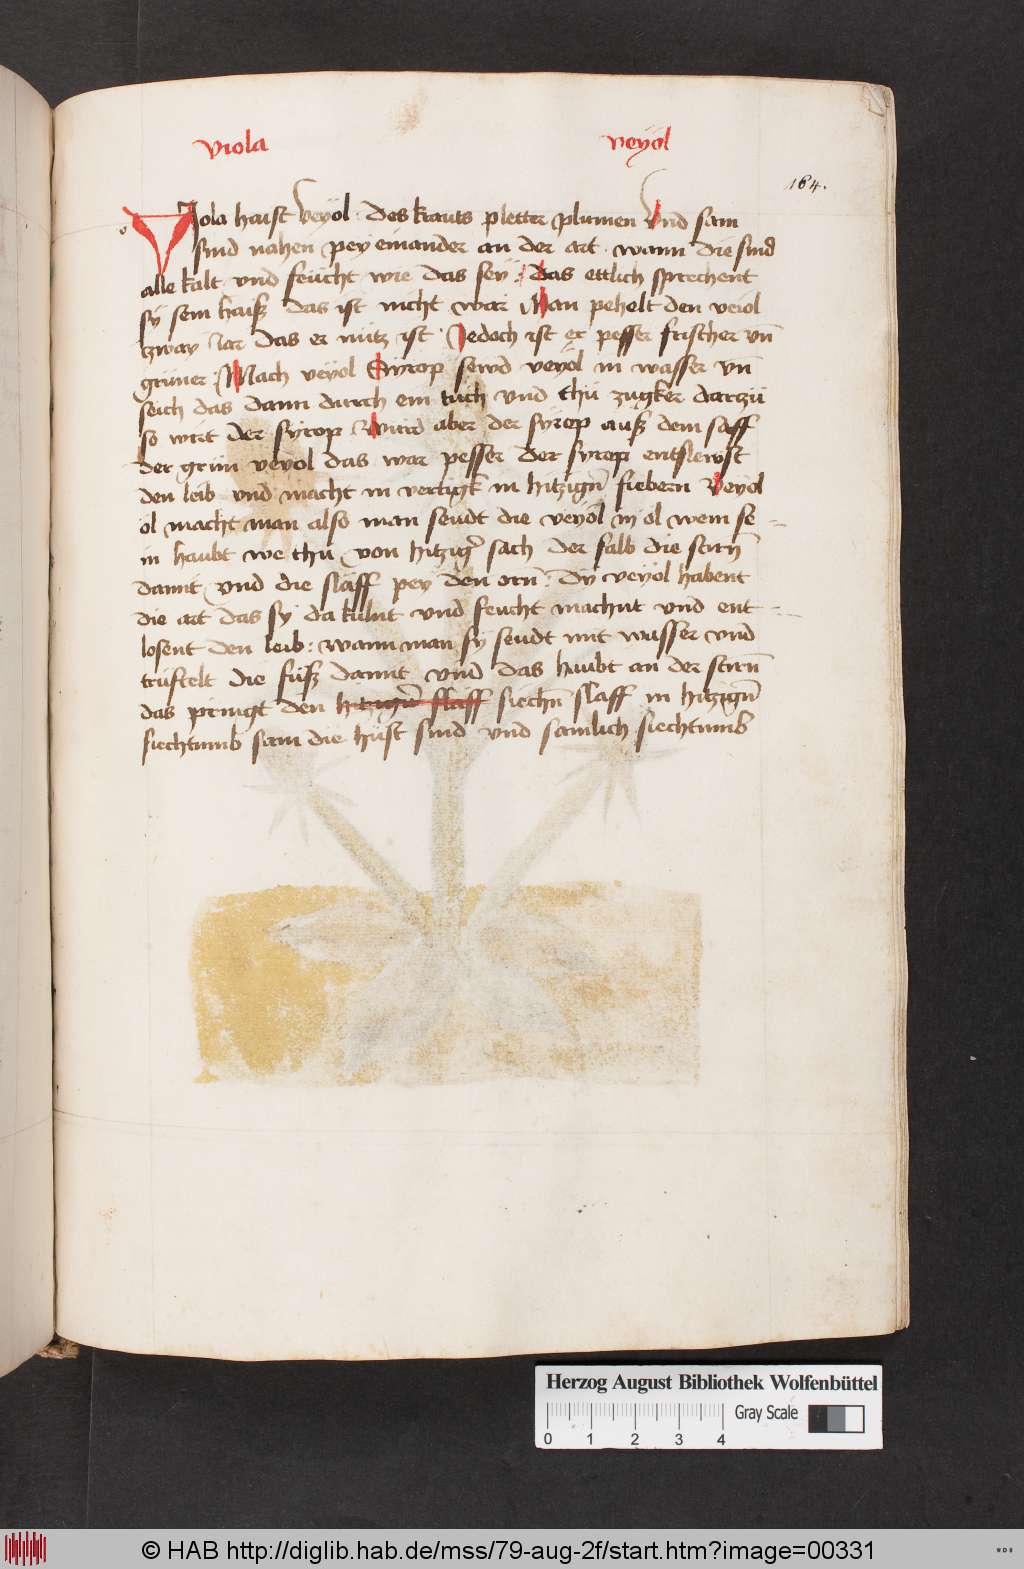 viola veÿol
164.
Viola haist veÿol · des krauts pletter plumen vnd sam
sind nahen peÿ einander an der art · wann die sind
alle kalt vnd feücht wie das seÿ : das ettlich sprechent
sÿ sein haisz das ist nicht war Man pehelt den veiol
zwaÿ Jar das er nütz ist · Jedoch ist er pesser frischer vn̄
grüner · Mach veÿol Sÿrop sewd veÿol in wasser vn̄
seich das dann durch ein tüch vnd thü zugker darzü
so wirt der sÿrop Wird aber der sÿrop ausz dem saff
der grün veÿol das war pesser der sÿrop entslewst
den leib vnd macht in vertigk in hitzign̄ fiebern Veÿol
öl macht man also man seudt die veÿol in öl wem se
in haubt we thü von hitzig' sach der salb die stirn̄
damit vnd die släff peÿ den orn̄ : Dÿ veÿol habent
die art das sÿ da külnt vnd feucht machnt vnd ent
losent den leib : wann man sÿ seudt mit wasser vnd
trüftelt die füsz damit vnd das haubt an der stirn̄
das pringt den hitzign̄ slaff siechn̄ slaff in hitzign̄
siechtumb sam die hüst sind vnd samlich siechtumb
Herzog August Bibliothek Wolfenbüttel
Gray Scale
0 1 2 3 4
© HAB http://diglib.hab.de/mss/79-aug-2f/start.htm?image=00331